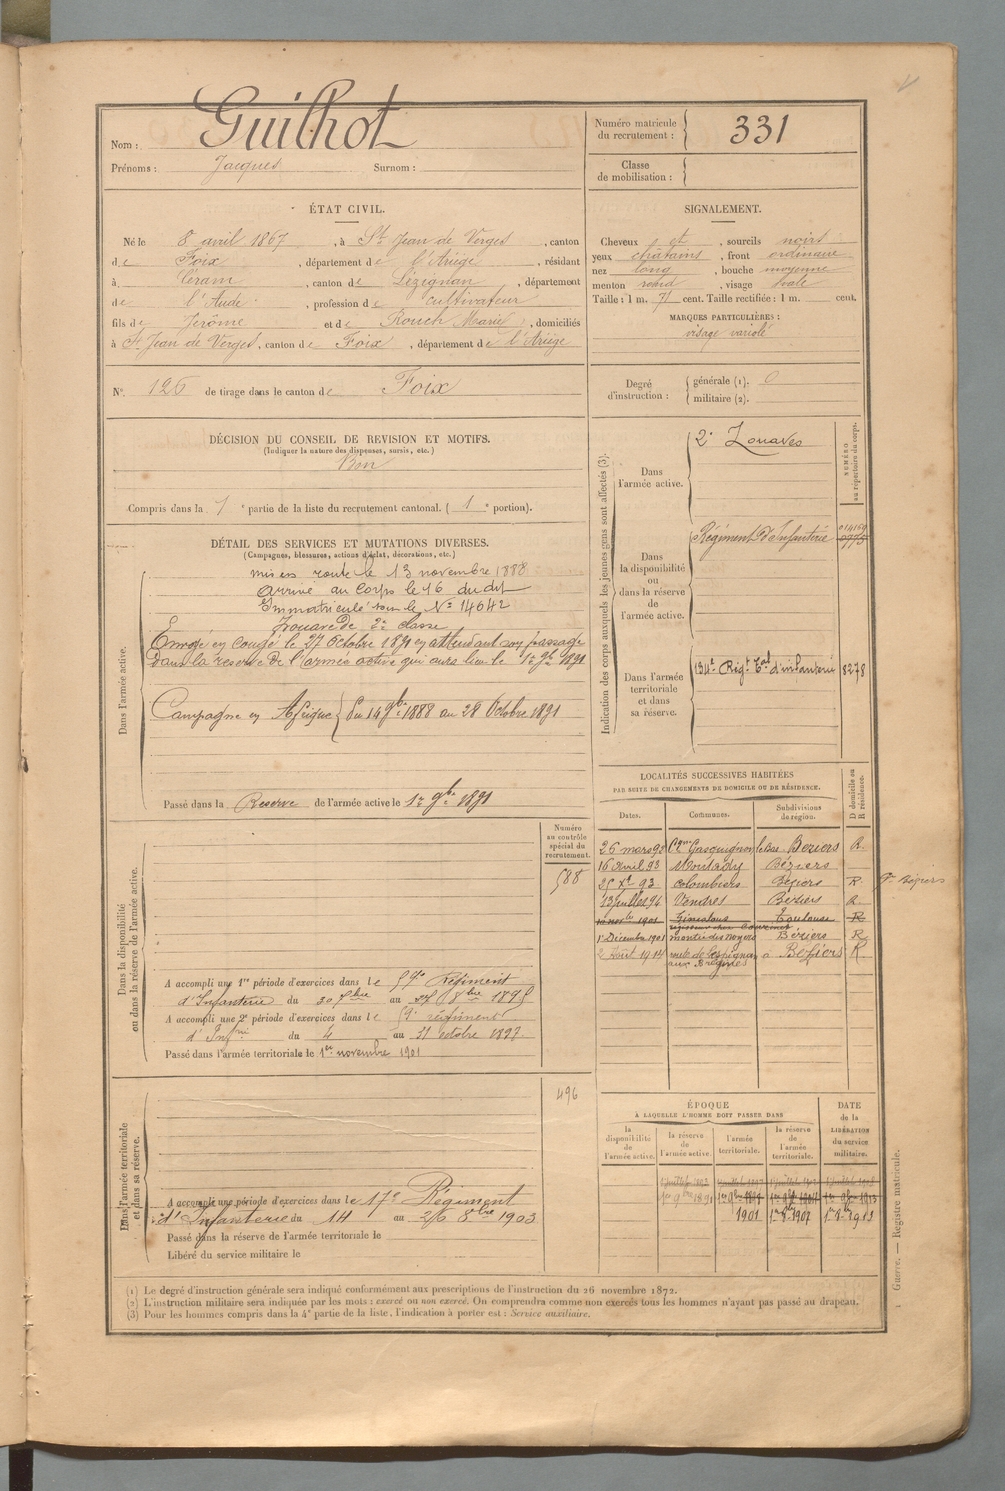 Nom : Guilhot
Prénoms : Jacques Surnom :
Numéro matricule du recrutement : 331
Classe de mobilisation :
ÉTAT CIVIL.
Né le 8 avril 1867, à St Jean de Verges, canton
de Foix, département de l'Ariège, résidant
à, canton de Lézignan, département
de l'Aude, profession de cultivateur
fils de Jérôme et de Rouch Marie, domiciliés
à St Jean de Verges, canton de Foix, département de l'Ariège
N° 126 de tirage dans le canton de Foix
SIGNALEMENT.
Cheveux et, sourcils noirs
yeux châtains, front ordinaire
nez long, bouche moyenne
menton rond, visage ovale
Taille : 1 m. 71 cent. Taille rectifiée : 1 m. cent.
MARQUES PARTICULIÈRES :
visage variolé
Degré d'instruction : générale (1). 0
militaire (2).
DÉCISION DU CONSEIL DE REVISION ET MOTIFS.
(Indiquer la nature des dispenses, sursis, etc.)
Bon
Compris dans la 1e partie de la liste du recrutement cantonal. (1e portion).
DÉTAIL DES SERVICES ET MUTATIONS DIVERSES.
(Campagnes, blessures, actions d'éclat, décorations, etc.)
Dans l'armée active.
mis en route le 13 novembre 1888
arrivé au corps le 16 du dit
Immatriculé sous le N° 14642
Zouave de 2e classe
Envoyé en congé le 27 Octobre 1891 en attendant son passage
dans la réserve de l'armée active qui aura lieu le 1er 9bre 1891
Campagne en Afrique du 14 9bre 1888 au 28 Octobre 1891
Passé dans la Réserve de l'armée active le 1er 9bre 1891
Indication des corps auxquels les jeunes gens sont affectés (3).
NUMÉRO au répertoire du corps.
Dans l'armée active.
2e Zouaves
Dans la disponibilité ou dans la réserve de l'armée active.
Régiment d'Infanterie
Dans l'armée territoriale et dans sa réserve.
134e Régt Tal d'infanterie 8278
LOCALITÉS SUCCESSIVES HABITÉES
PAR SUITE DE CHANGEMENTS DE DOMICILE OU DE RÉSIDENCE.
Dates. Communes. Subdivisions de région. D domicile ou R résidence.
26 mars 92 Béziers R.
16 Avril 93 Montady Béziers
93 Colombiers Béziers R
13 juillet 94 Vendres Béziers R.
1901 Toulouse R
1er Décembre 1901 Béziers R
2 Août 1914 Béziers R
Dans la disponibilité ou dans la réserve de l'armée active.
Numéro au contrôle spécial du recrutement.
588
A accompli une 1re période d'exercices dans le Régiment
d'Infanterie du 30 7bre au 8bre 1895
A accompli une 2e période d'exercices dans le régiment
d' du 4 au 31 octobre 1897
Passé dans l'armée territoriale le 1er novembre 1901
ÉPOQUE
À LAQUELLE L'HOMME DOIT PASSER DANS
la disponibilité de l'armée active.
la réserve de l'armée active.
l'armée territoriale.
la réserve de l'armée territoriale.
DATE de la LIBÉRATION du service militaire.
1er 9bre 1891
1901 1907 1913
Dans l'armée territoriale et dans sa réserve.
496
A accompli une période d'exercices dans le 17e Régiment
d'Infanterie du 14 au 26 8bre 1903
Passé dans la réserve de l'armée territoriale le
Libéré du service militaire le
(1) Le degré d'instruction générale sera indiqué conformément aux prescriptions de l'instruction du 26 novembre 1872.
(2) L'instruction militaire sera indiquée par les mots : exercé ou non exercé. On comprendra comme non exercés tous les hommes n'ayant pas passé au drapeau.
(3) Pour les hommes compris dans la 4e partie de la liste, l'indication à porter est : Service auxiliaire.
Guerre. — Registre matricule.